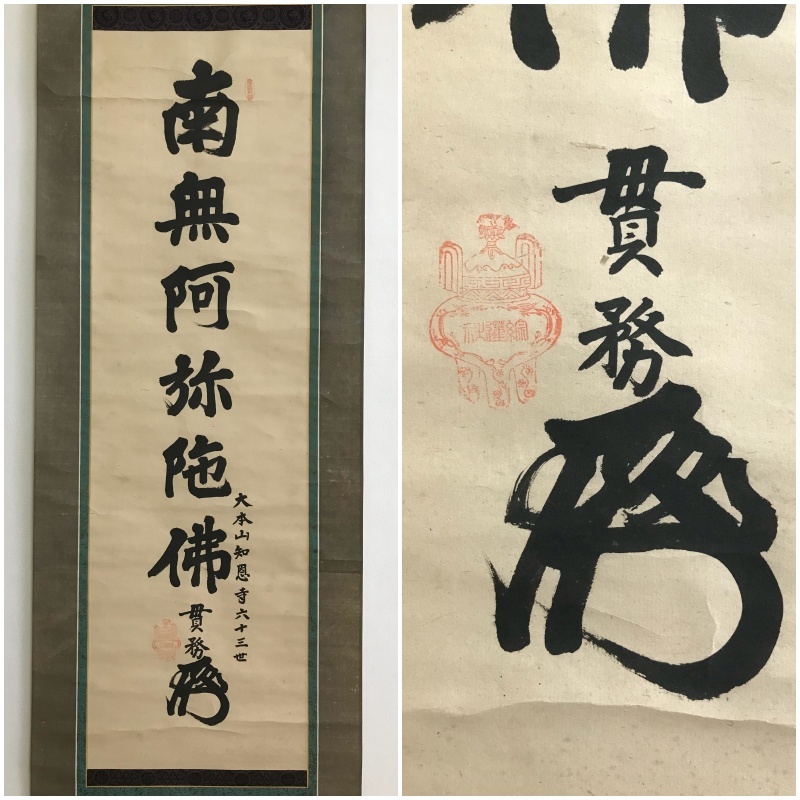 南無阿弥陀佛
大本山知恩寺六十三世
貫務
貫務